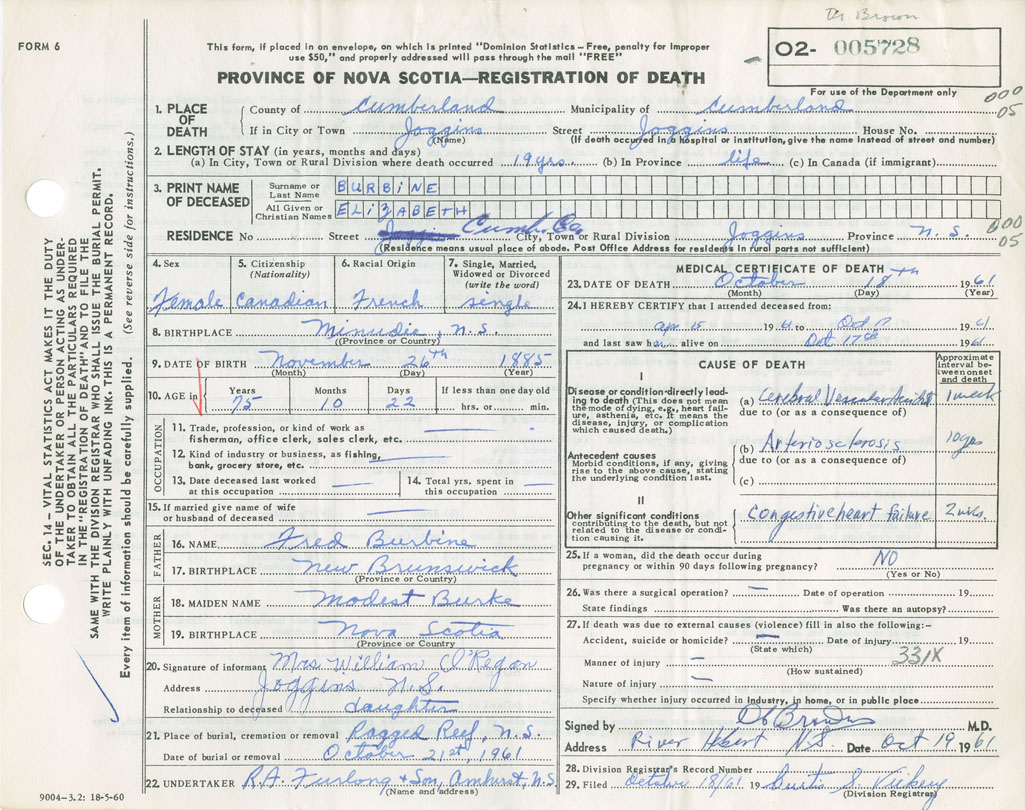 Dr. Brown
FORM 6
This form, if placed in an envelope, on which is printed "Dominion Statistics – Free, penalty for improper
use $50," and properly addressed will pass through the mail "FREE"
O2- 005728
PROVINCE OF NOVA SCOTIA—REGISTRATION OF DEATH
For use of the Department only
000
05
1. PLACE OF DEATH
County of Cumberland Municipality of Cumberland
If in City or Town Joggins Street Joggins House No.
(Name) (If death occurred in a hospital or institution, give the name instead of street and number)
2. LENGTH OF STAY (in years, months and days)
(a) In City, Town or Rural Division where death occurred 19 yrs. (b) In Province life (c) In Canada (if immigrant)
3. PRINT NAME OF DECEASED
Surname or Last Name BURBINE
All Given or Christian Names ELIZABETH
RESIDENCE No Street Cumb. Co City, Town or Rural Division Joggins Province N. S.
000
05
(Residence means usual place of abode. Post Office Address for residents in rural parts not sufficient)
4. Sex Female
5. Citizenship (Nationality) Canadian
6. Racial Origin French
7. Single, Married, Widowed or Divorced (write the word) single
8. BIRTHPLACE Minudie, N.S.
(Province or Country)
9. DATE OF BIRTH November 26th 1885
(Month) (Day) (Year)
10. AGE in Years 75 Months 10 Days 22 If less than one day old hrs. or min.
OCCUPATION
11. Trade, profession, or kind of work as
fisherman, office clerk, sales clerk, etc.
12. Kind of industry or business, as fishing,
bank, grocery store, etc.
13. Date deceased last worked
at this occupation
14. Total yrs. spent in
this occupation
15. If married give name of wife
or husband of deceased
FATHER
16. NAME Fred Burbine
17. BIRTHPLACE New Brunswick
(Province or Country)
MOTHER
18. MAIDEN NAME Modest Burke
19. BIRTHPLACE Nova Scotia
(Province or Country)
20. Signature of informant Mrs William O'Regan
Address Joggins N.S.
Relationship to deceased daughter
21. Place of burial, cremation or removal Ragged Reef, N.S.
Date of burial or removal October 21st, 1961
22. UNDERTAKER R.A. Furlong & Son, Amhurst, N.S.
(Name and address)
MEDICAL CERTIFICATE OF DEATH
23. DATE OF DEATH October 18th 1961
(Month) (Day) (Year)
24. I HEREBY CERTIFY that I attended deceased from:
Apr. 15 1961 to Oct 17 1961
and last saw her alive on Oct 17th 1961
CAUSE OF DEATH
Approximate interval between onset and death
I
Disease or condition directly leading to death (This does not mean
the mode of dying, e.g., heart failure, asthenia, etc. It means the
disease, injury, or complication
which caused death.)
(a) Cerebral Vascular 1 week
due to (or as a consequence of)
Antecedent causes
Morbid conditions, if any, giving
rise to the above cause, stating
the underlying condition last.
(b) Arteriosclerosis 10 yrs
due to (or as a consequence of)
(c)
II
Other significant conditions
contributing to the death, but not
related to the disease or condition causing it.
Congestive heart failure 2 wks.
25. If a woman, did the death occur during
pregnancy or within 90 days following pregnancy? NO
(Yes or No)
26. Was there a surgical operation? — Date of operation 19
State findings Was there an autopsy?
27. If death was due to external causes (violence) fill in also the following:-
Accident, suicide or homicide? — Date of injury 19
(State which)
331X
Manner of injury —
(How sustained)
Nature of injury —
Specify whether injury occurred in industry, in home, or in public place
Signed by Brown M.D.
Address River Hebert N.S. Date Oct 19 1961
28. Division Registrar's Record Number
29. Filed October 18/61 19 Curtis S Vickery
(Division Registrar)
9004-3.2: 18-5-60
SEC. 14 – VITAL STATISTICS ACT MAKES IT THE DUTY
OF THE UNDERTAKER OR PERSON ACTING AS UNDER-
TAKER TO OBTAIN ALL THE PARTICULARS REQUIRED
IN THE "REGISTRATION OF DEATH" AND TO FILE THE
SAME WITH THE DIVISION REGISTRAR WHO SHALL ISSUE THE BURIAL PERMIT.
WRITE PLAINLY WITH UNFADING INK. THIS IS A PERMANENT RECORD.
Every item of information should be carefully supplied. (See reverse side for instructions.)